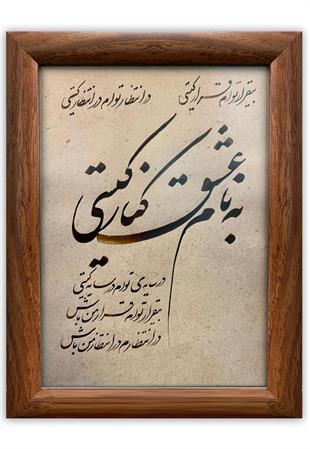 بیقرار توام قرار کیستی در انتظار توام در انتظار کیستی
به نام عشق کنار کیستی
در سایه‌ی توام در سایه کیستی
بیقرار توام قرار من باش
در انتظارم در انتظار من باش